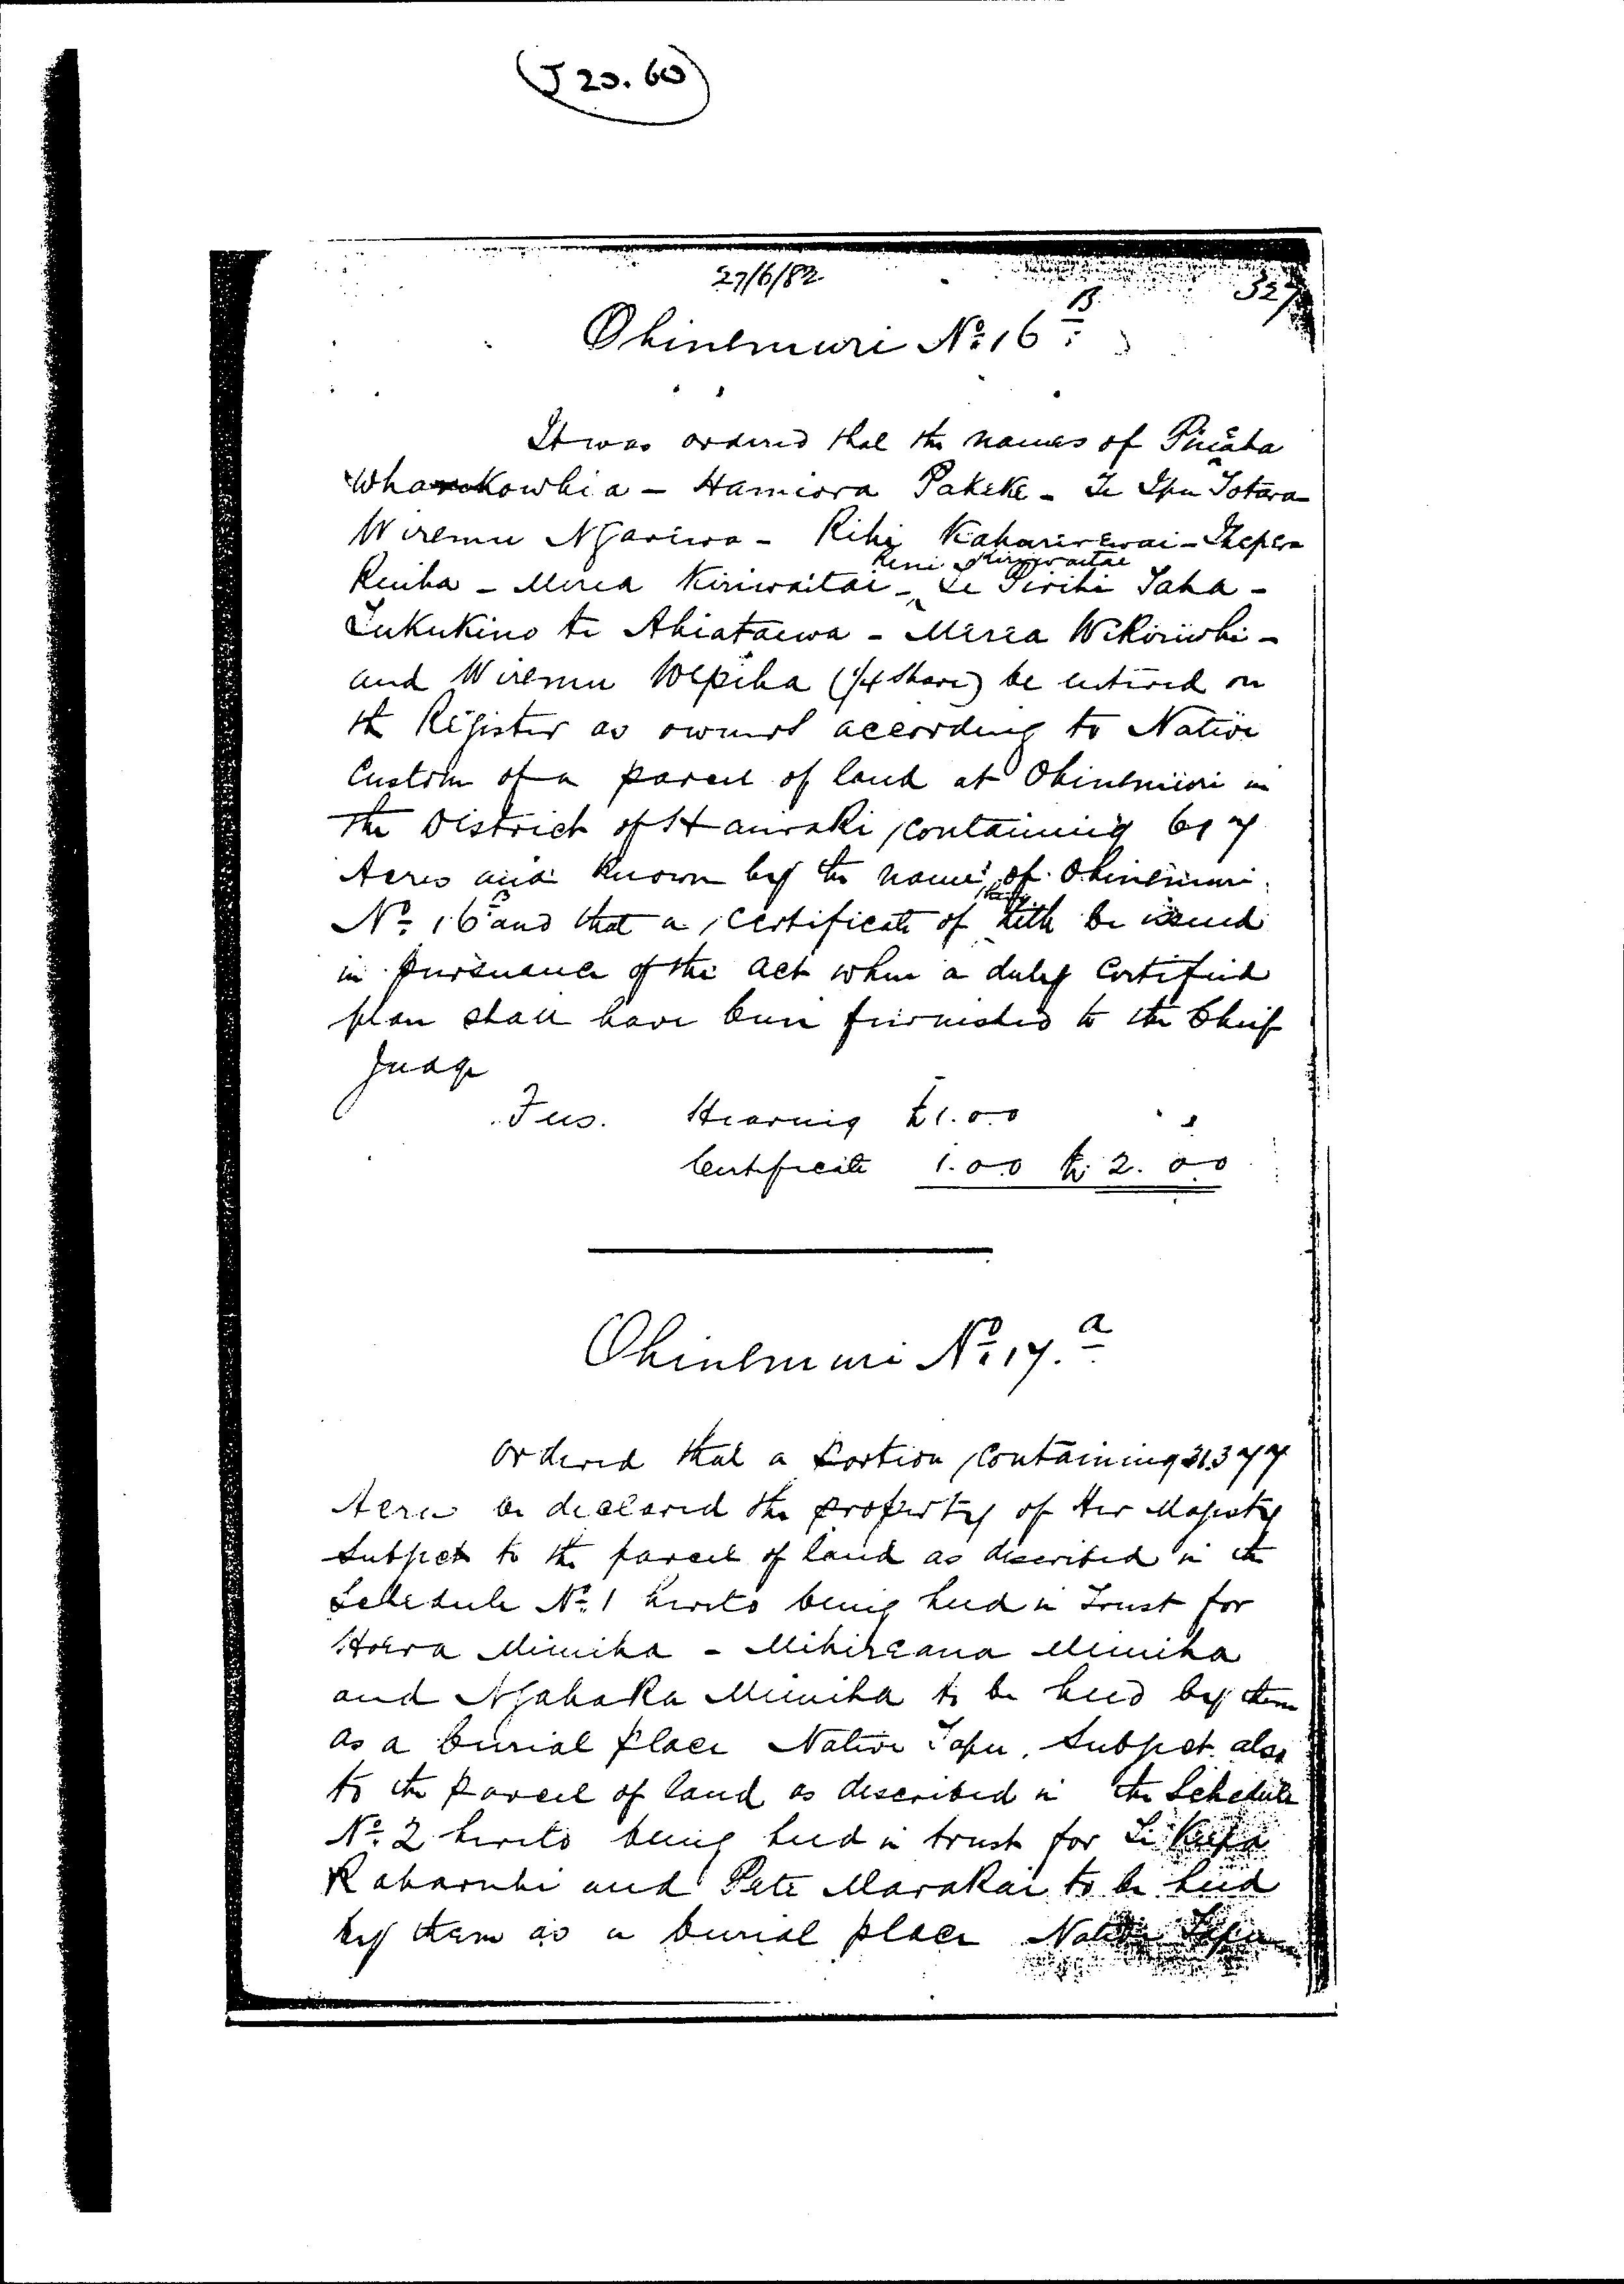 (J 20. 60)
27/6/82
327
Ohinemuri No. 16 B
It was ordered that the names of Pineaha
Wharekowhia - Hamiora Pakeke - Te Ipu Totara
Wiremu Ngariwa - Rihi Kaharirewai - Ihepera
Reni Kiriwaitai
Reuiha - Merea Kiriwaitai - Te Pirihi Taha -
Tukukino te Ahiataewa - Merea Wikiriwhi -
and Wiremu Wepiha (1/4 share) be entered on
the Register as owners according to Native
Custom of a parcel of land at Ohinemuri in
the District of Hauraki containing 617
Acres and known by the name of Ohinemuri
No. 16 B and that a certificate of title be issued
in pursuance of the Act when a duly certified
plan shall have been furnished to the Chief
Judge
Fees. Hearing £1.0.0
Certificate 1.0.0 £2.0.0
Ohinemuri No. 17. a
Ordered that a portion containing 31.377
Acres be declared the property of Her Majesty
Subject to the parcel of land as described in the
Schedule No. 1 hereto being held in Trust for
Hoera Mimiha - Mihireana Mimiha
and Ngahaka Mimiha to be held by them
as a burial place Native Tapu. Subject also
to the parcel of land as described in the Schedule
No. 2 hereto being held in trust for Te Keepa
Raharuhi and Pete Marakai to be held
by them as a burial place Native Tapu